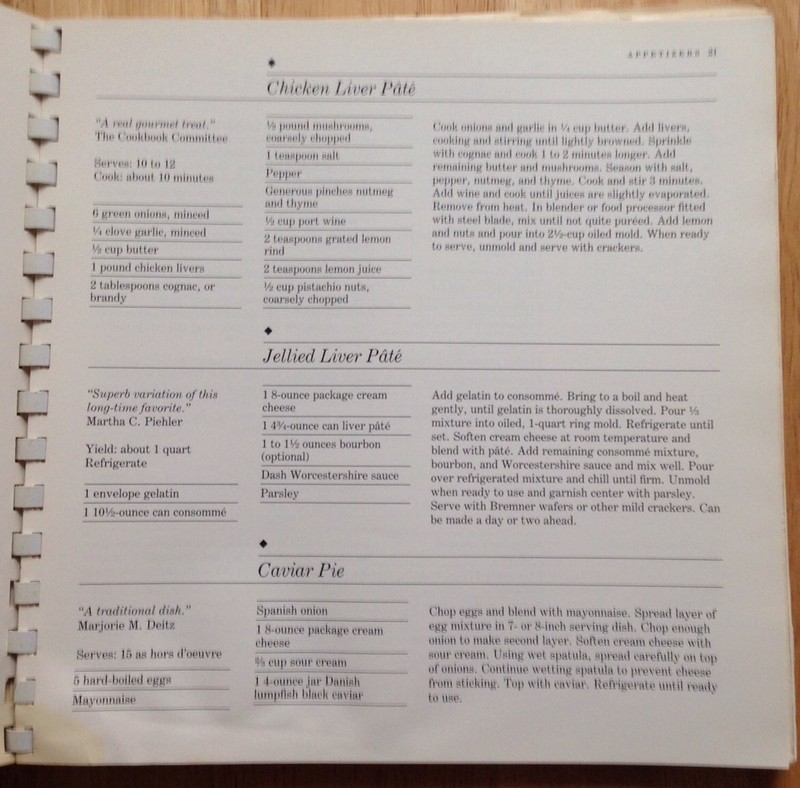 APPETIZERS 21
Chicken Liver Pâté
"A real gourmet treat."
The Cookbook Committee
Serves: 10 to 12
Cook: about 10 minutes
6 green onions, minced
¼ clove garlic, minced
½ cup butter
1 pound chicken livers
2 tablespoons cognac, or
brandy
½ pound mushrooms,
coarsely chopped
1 teaspoon salt
Pepper
Generous pinches nutmeg
and thyme
½ cup port wine
2 teaspoons grated lemon
rind
2 teaspoons lemon juice
½ cup pistachio nuts,
coarsely chopped
Cook onions and garlic in ¼ cup butter. Add livers,
cooking and stirring until lightly browned. Sprinkle
with cognac and cook 1 to 2 minutes longer. Add
remaining butter and mushrooms. Season with salt,
pepper, nutmeg, and thyme. Cook and stir 3 minutes.
Add wine and cook until juices are slightly evaporated.
Remove from heat. In blender or food processor fitted
with steel blade, mix until not quite puréed. Add lemon
and nuts and pour into 2½-cup oiled mold. When ready
to serve, unmold and serve with crackers.
Jellied Liver Pâté
"Superb variation of this
long-time favorite."
Martha C. Piehler
Yield: about 1 quart
Refrigerate
1 envelope gelatin
1 10½-ounce can consommé
1 8-ounce package cream
cheese
1 4¾-ounce can liver pâté
1 to 1½ ounces bourbon
(optional)
Dash Worcestershire sauce
Parsley
Add gelatin to consommé. Bring to a boil and heat
gently, until gelatin is thoroughly dissolved. Pour ⅓
mixture into oiled, 1-quart ring mold. Refrigerate until
set. Soften cream cheese at room temperature and
blend with pâté. Add remaining consommé mixture,
bourbon, and Worcestershire sauce and mix well. Pour
over refrigerated mixture and chill until firm. Unmold
when ready to use and garnish center with parsley.
Serve with Bremner wafers or other mild crackers. Can
be made a day or two ahead.
Caviar Pie
"A traditional dish."
Marjorie M. Deitz
Serves: 15 as hors d'oeuvre
5 hard-boiled eggs
Mayonnaise
Spanish onion
1 8-ounce package cream
cheese
⅔ cup sour cream
1 4-ounce jar Danish
lumpfish black caviar
Chop eggs and blend with mayonnaise. Spread layer of
egg mixture in 7- or 8-inch serving dish. Chop enough
onion to make second layer. Soften cream cheese with
sour cream. Using wet spatula, spread carefully on top
of onions. Continue wetting spatula to prevent cheese
from sticking. Top with caviar. Refrigerate until ready
to use.